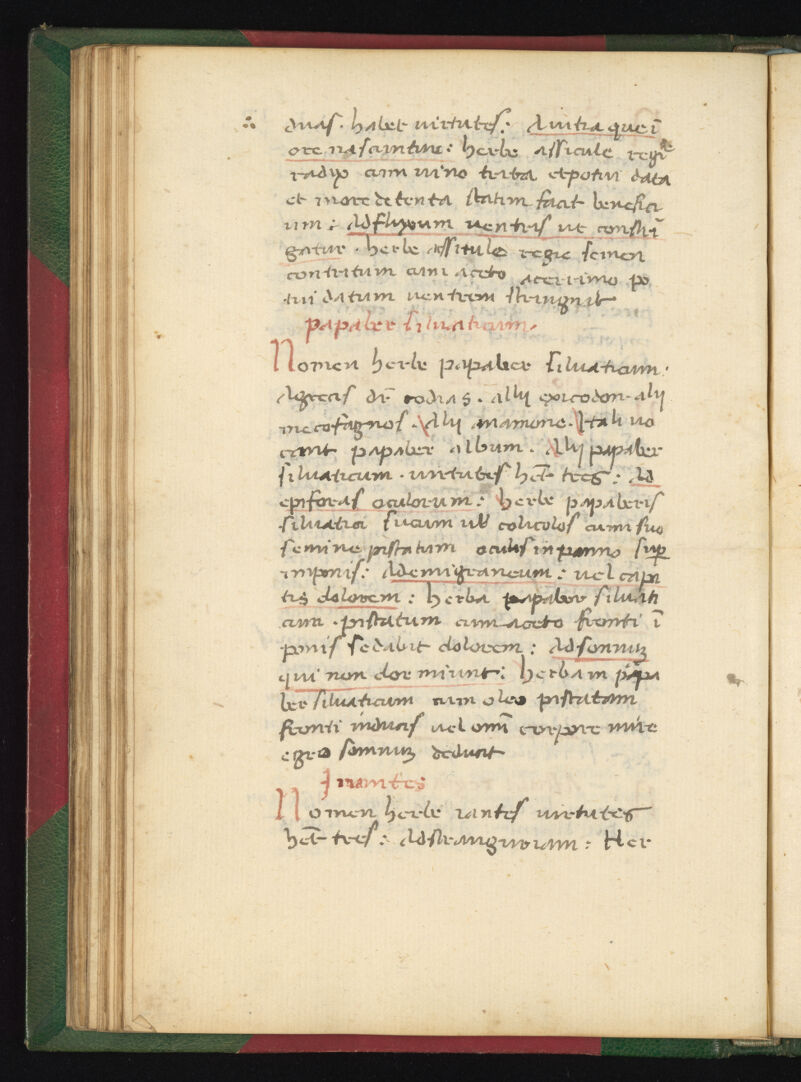 duas. habet uirtutes: Auitia que ī
ore nascuntur: herbe assicule regie
radix cum uino trita et potui data
et in ore detenta statim facit benefici
um: Ad fluxum uentris ut constrī
gatur. herbe assitule regie semen
contritum cum aceto acerrimo po
tui datum uentrem stringuit
papaber siluaticum.
Nomen herbe papaber siluaticum.
Agrecis dr̄ codias. alij oxicodon. alij
mecofagnos. Alij anamone. Itali uo
cant papaber album. Alij papaber
siluaticum. uirtutes het̄ tres: Ad
epiforas oculorum: herbe papaberis
siluatici sucum uel colicolos cum suo
semine pistatum oculis in panno sup
imponis: Ad emigraneum: uel capi
tis dolorem: herba papaber siluati
cum. pistatum cum aceto fronti ī
ponis sedabit dolorem: Ad somnuz
qui non dormiunt: herbam papa
ber siluaticum cum oleo pistatam
fronti inducis uel omī corpore mire
egro somnuz deducit
Inantes
Nomen herbe iantes uirtutes
het̄ tres: Ad stranguoriam: Her